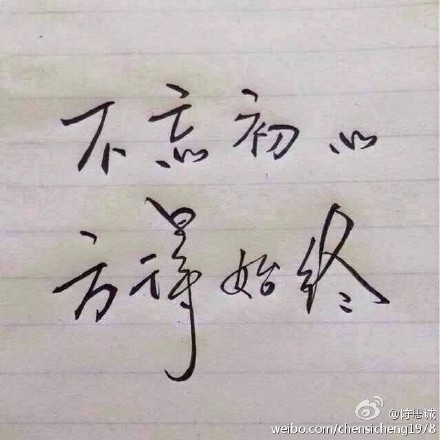 不忘初心
方得始终
@陈思诚
weibo.com/chensicheng1978